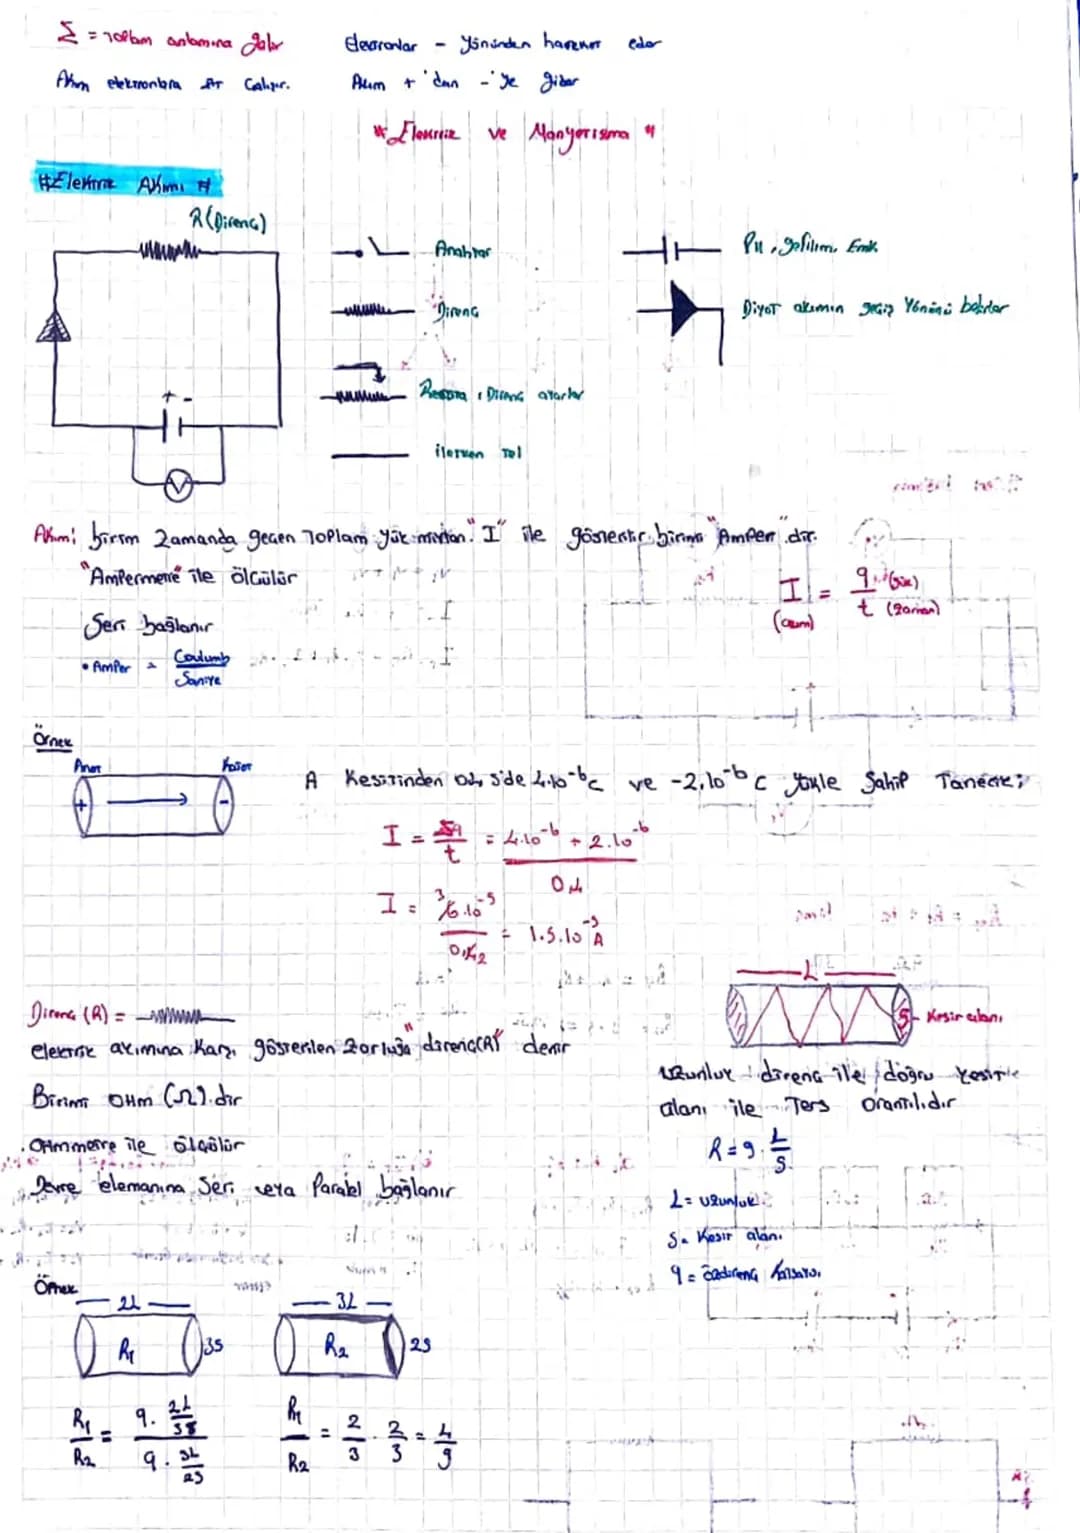 Σ = Toplam anlamına gelir
Elektronlar - yönünden hareket eder
Akım elektronlara zıt çalışır.
Akım + 'dan -'ye gider
" Elektrik ve Manyetisma "
#Elektrik Akımı #
R (Direnç)
Anahtar
Pil, gerilim, Emk
Direnç
Diyot akımın geçiş yönünü belirler
Reosta, Direnç ayarlar
iletken Tel
+ -
V
Akım: birim zamanda geçen Toplam yük miktarı. "I" ile gösterilir. birimi "Amper" dir.
"Ampermetre" ile ölçülür
I = q (yük)
(akım) t (zaman)
Seri bağlanır
• Amper = Coulumb
Saniye
Örnek
Anot Katot
+ -
A kesitinden 0,4 s'de 4.10⁻⁶C ve -2.10⁻⁶ C yükle Sahip Tanecik;
I = Σq / t = 4.10⁻⁶ + 2.10⁻⁶
0,4
I = 6.10⁻⁵ / 0,4 = 1.5.10⁻⁵ A
L
S - Kesit alanı
Direnç (R) =
elektrik akımına karşı gösterilen zorluğa "direnç(R)" denir
Birimi OHm (Ω) dir
Ohmmetre ile ölçülür
Devre elemanına Seri veya Paralel bağlanır
uzunluk direnç ile doğru kesit
alanı ile Ters orantılıdır
R = q . L / S
L = uzunluk
S = Kesit alanı
q = özdirenç katsayı
Örnek
2L 3L
R₁ 3S R₂ 2S
R₁ / R₂ = q . 2L/3S / q . 3L/2S
R₁ / R₂ = 2/3 . 2/3 = 4/9